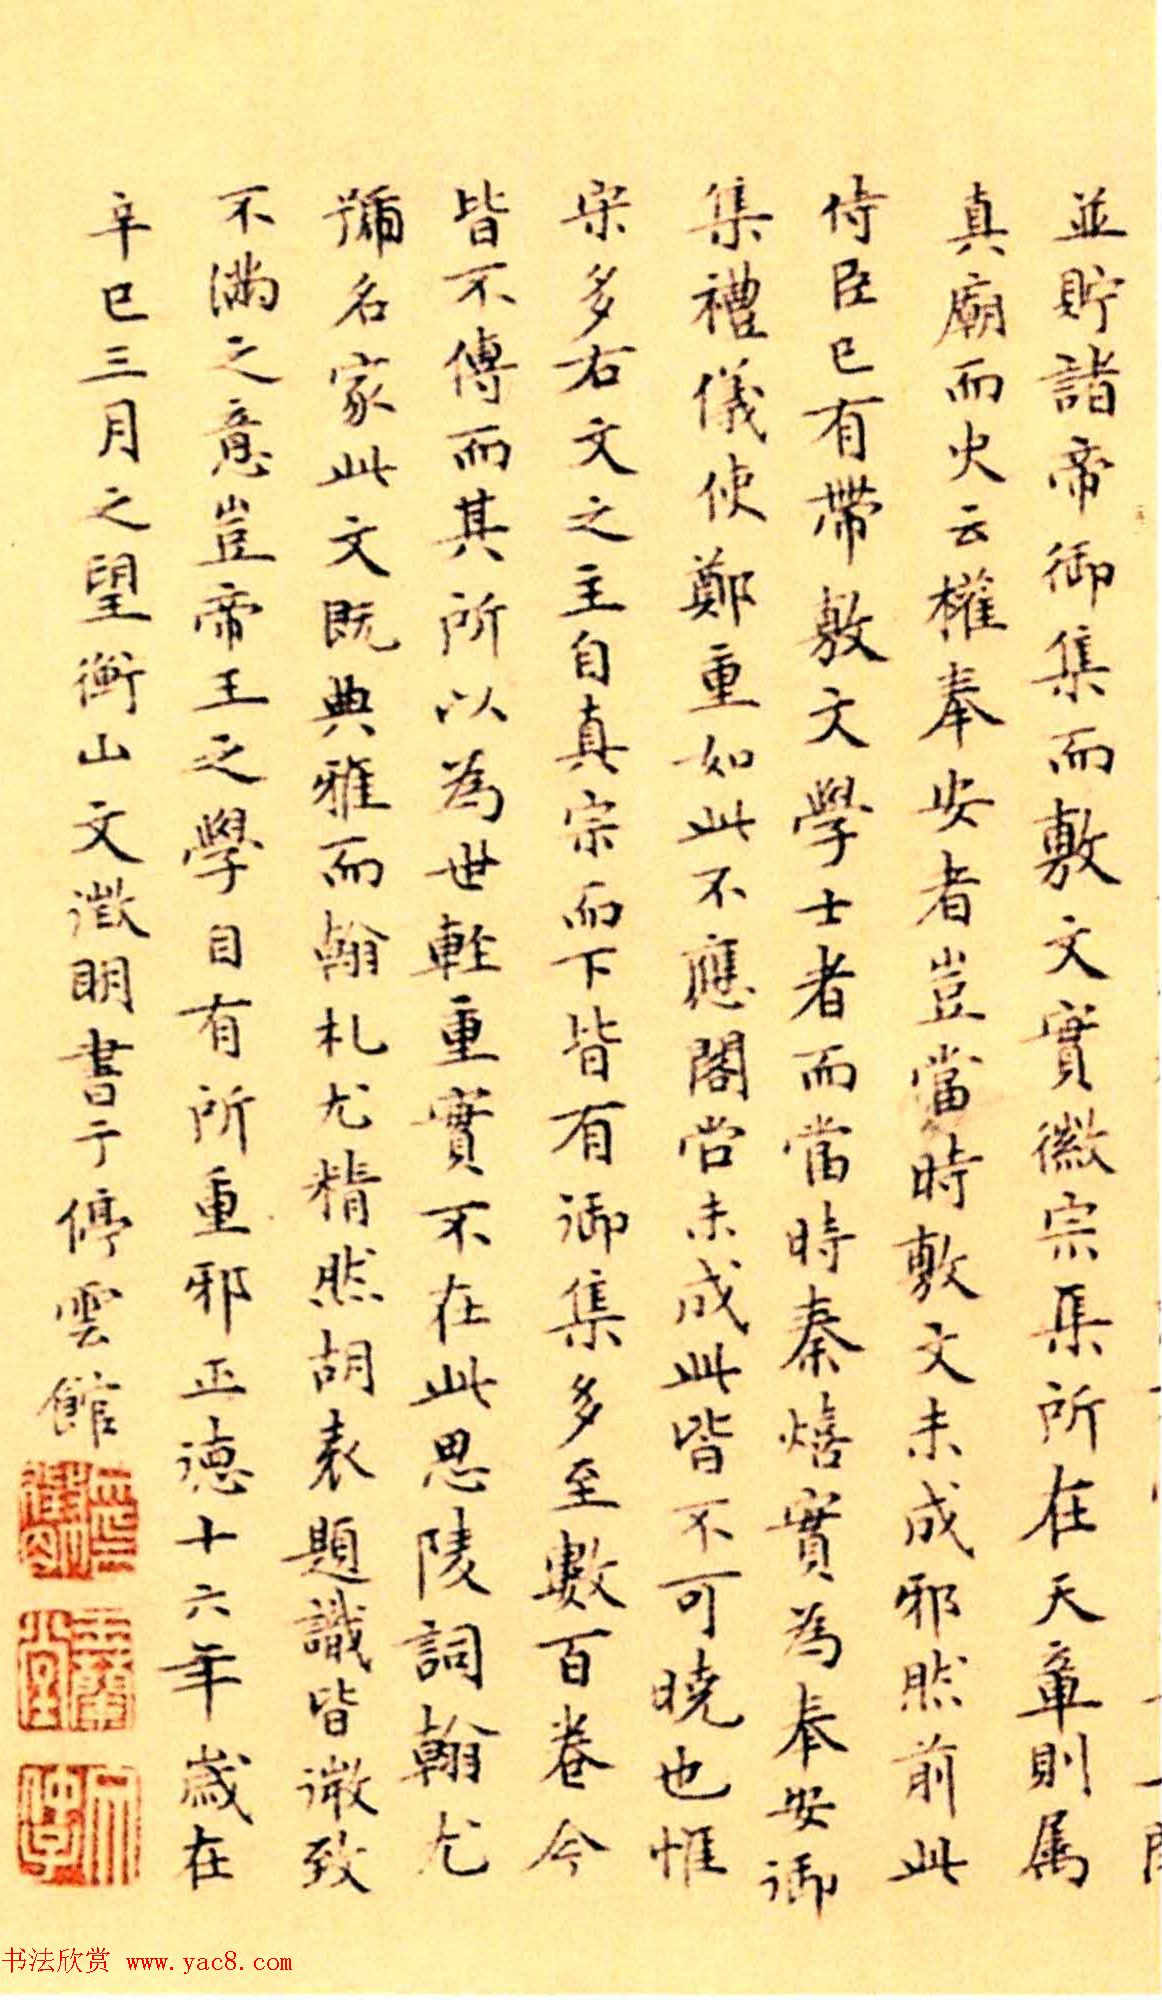 並貯諸帝御集而敷文實徽宗集所在天章則属
真廟而火云權奉安者豈當時敷文未成邪然前此
侍臣已有帶敷文學士者而當時秦熺實為奉安御
集禮儀使鄭重如此不應閣尚未成此皆不可曉也惟
宋多右文之主自真宗而下皆有御集多至數百卷今
皆不傳而其所以為世輊重實不在此思陵詞翰尤
號名家此文既典雅而翰札尤精然胡表題識皆微致
不滿之意豈帝王之學自有所重邪正德十六年歲在
辛巳三月之望衡山文徵明書于停雲館
玉蘭堂
书法欣赏 www.yac8.com